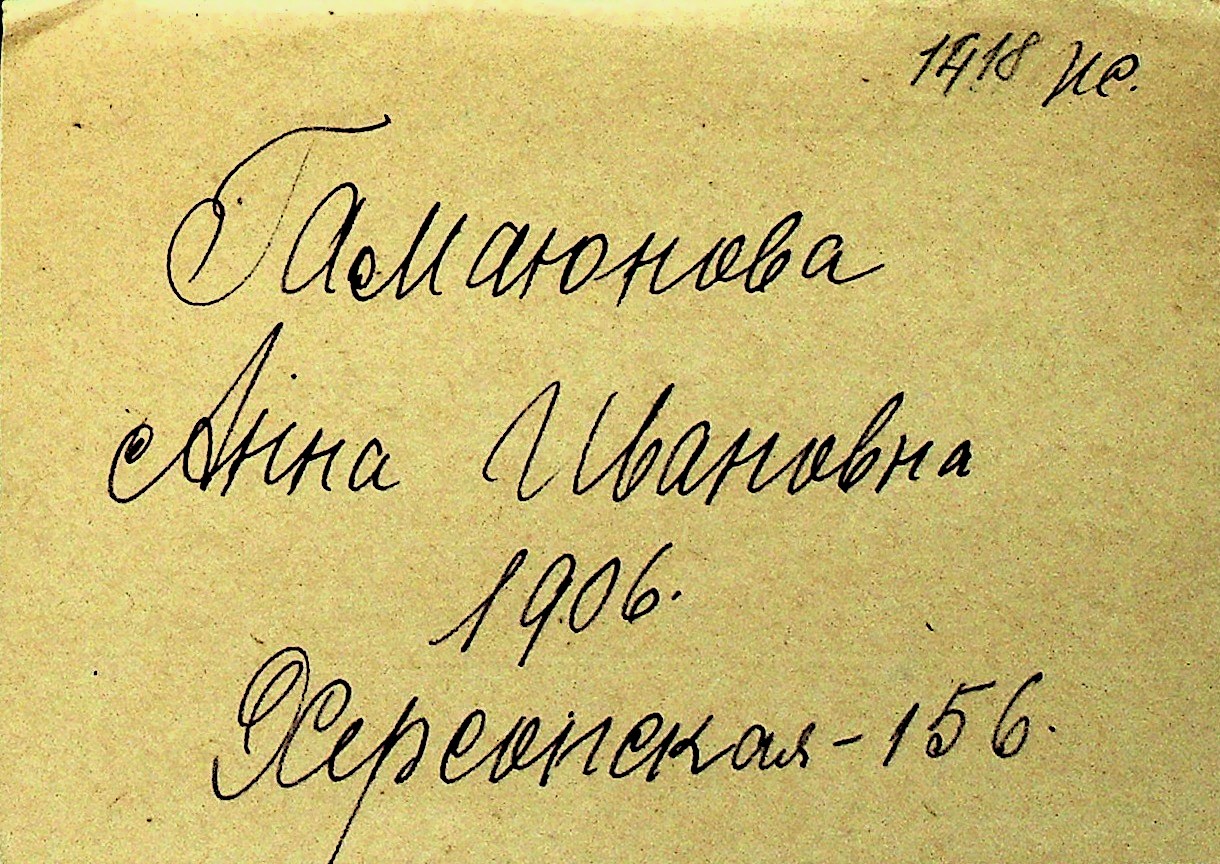 1418 ис.
Гамаюнова
Анна Ивановна
1906.
Херсонская - 156.